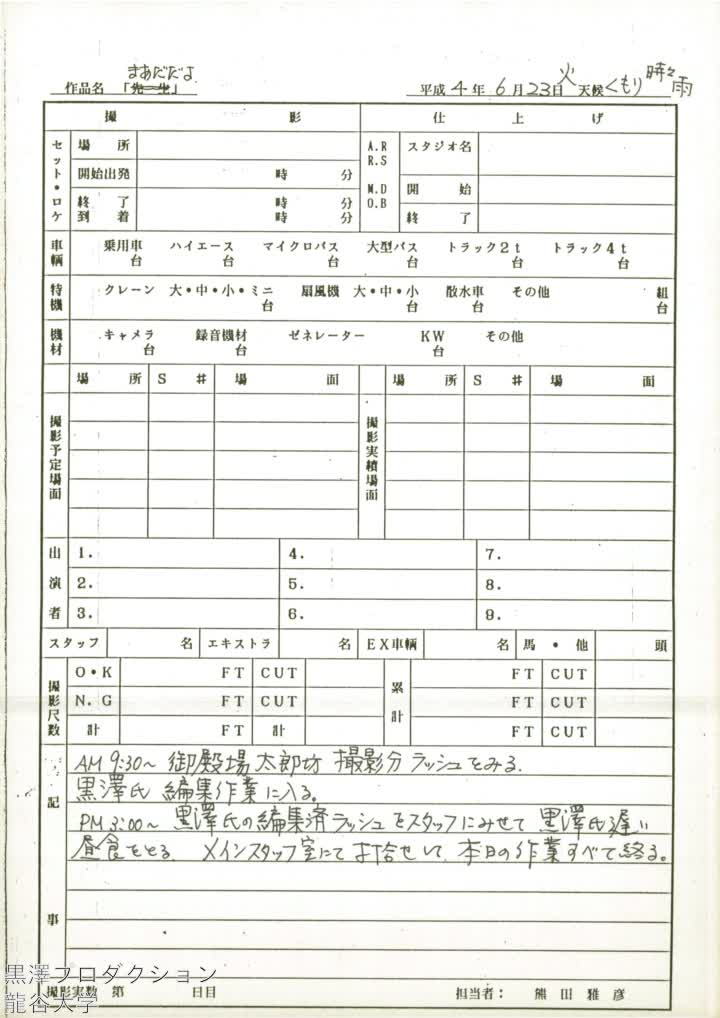 まあだだよ
作品名 「先生」 平成 4 年 6 月 23日 火 天候 くもり 時々雨
撮 影 仕 上 げ
セット・ロケ 場 所 A.R R.S M.D O.B スタジオ名
開始出発 時 分 開 始
終 了 時 分 終 了
到 着 時 分
車輌 乗用車 ハイエース マイクロバス 大型バス トラック2t トラック4t
台 台 台 台 台 台
特機 クレーン 大・中・小・ミニ 扇風機 大・中・小 散水車 その他 組
台 台 台 台
機材 キャメラ 録音機材 ゼネレーター KW その他
台 台 台
場 所 S # 場 面 場 所 S # 場 面
撮影予定場面 撮影実績場面
出演者 1. 4. 7.
2. 5. 8.
3. 6. 9.
スタッフ 名 エキストラ 名 EX車輌 名 馬・他 頭
撮影尺数 O・K FT CUT 累計 FT CUT
N.G FT CUT FT CUT
計 FT 計 FT CUT
記事
AM 9:30~ 御殿場 太郎坊 撮影分 ラッシュをみる.
黒澤氏 編集作業に入る。
PM 3:00~ 黒澤氏の編集済ラッシュをスタッフにみせて 黒澤氏遅い
昼食をとる メインスタッフ室にて 打合せして 本日の作業すべて終る。
撮影実数 第 日目 担当者: 熊田雅彦
黒澤プロダクション
龍谷大学